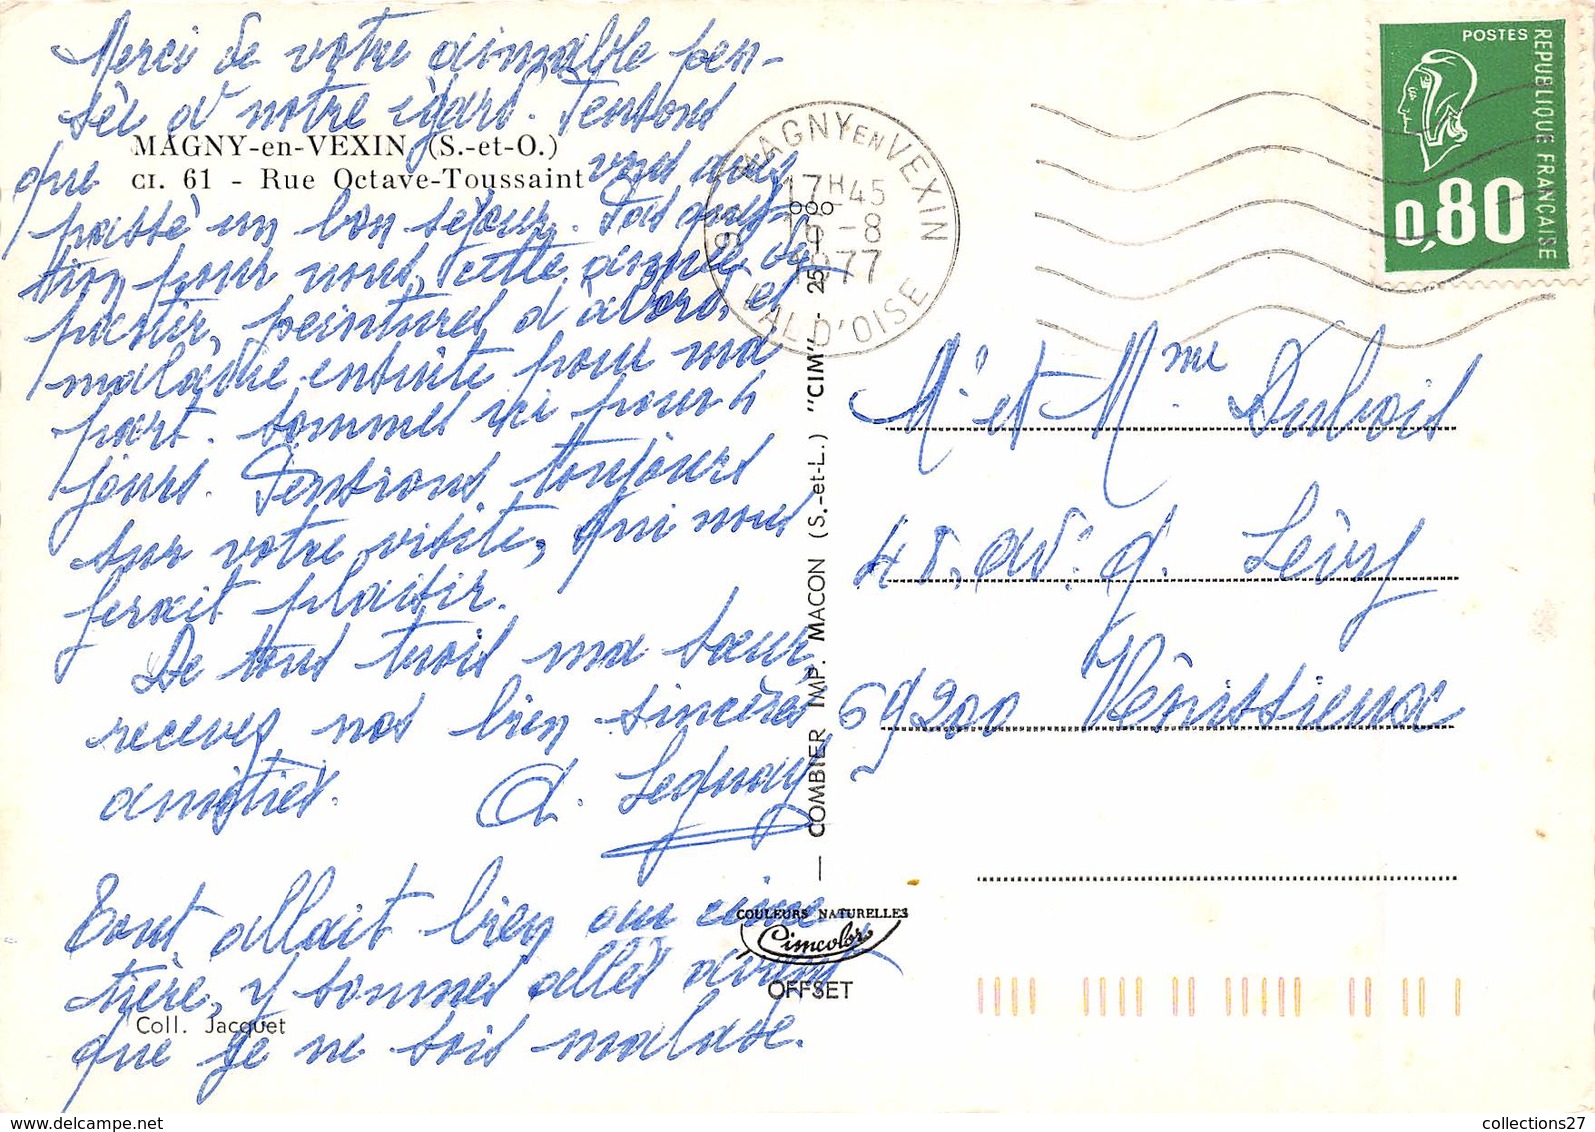 Merci de votre aimable pen-
sée à notre égard. Pensons
MAGNY-en-VEXIN (S.-et-O.)
CI. 61 - Rue Octave-Toussaint
que vous avez
passé un bon séjour. Pas ques-
tion pour nous, cette année de
partir, peintures d'abord, et
maladie ensuite pour ma
part. Sommes ici pour
jours. Pensions toujours
sur votre visite, qui nous
ferait plaisir.
De tous trois ma sœur,
recevez nos bien sincères
amitiés. A.
Tout allait bien au cime-
tière, y sommes allés avant
que je ne sois malade.
Coll. Jacquet
COMBIER IMP. MACON (S.-et-L.) "CIM"
COULEURS NATURELLES
Cimcolor
OFFSET
MAGNY EN VEXIN
17H45
-8
1977
VAL D'OISE
POSTES
REPUBLIQUE FRANÇAISE
0,80
Mr et Mme Dubois
48, av: G. Lévy
69200 Vénissieux
collections27